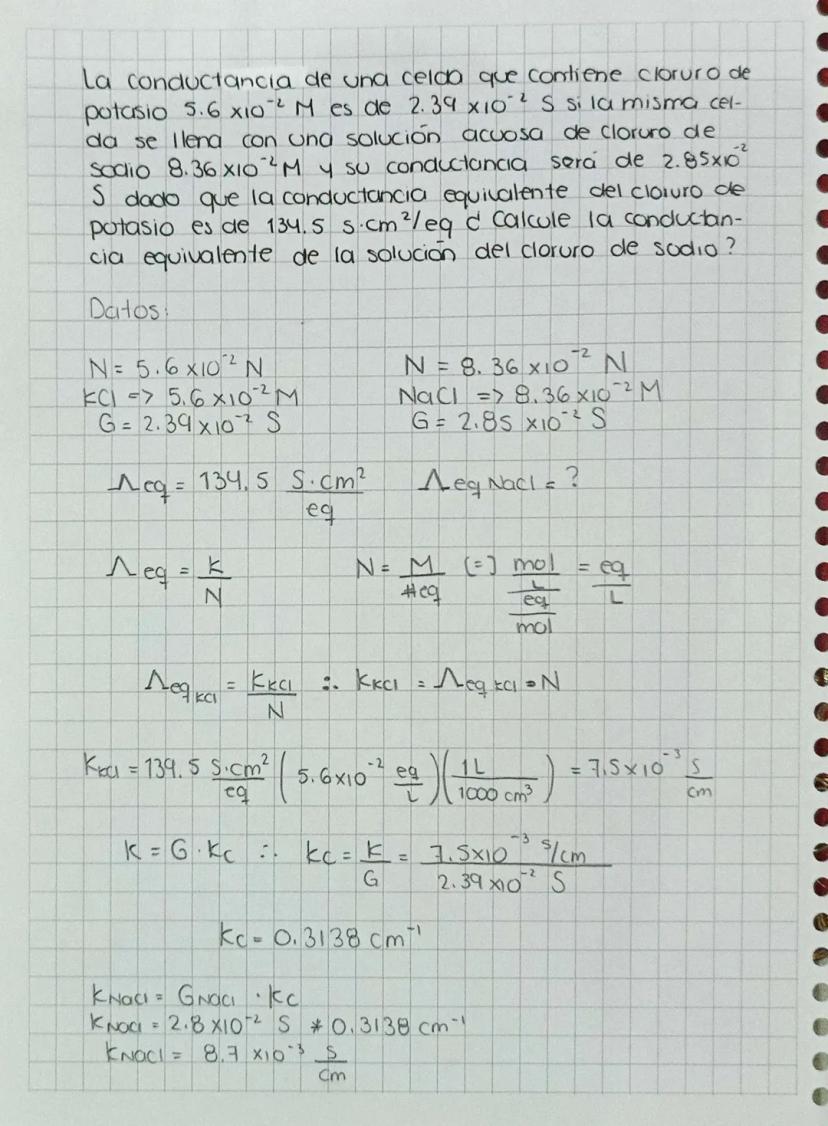 La conductancia de una celda que contiene cloruro de
potasio 5.6 x10⁻² M es de 2.39 x10⁻² S si la misma cel-
da se llena con una solución acuosa de cloruro de
sodio 8.36 x10⁻² M y su conductancia será de 2.85x10⁻²
S dado que la conductancia equivalente del cloruro de
potasio es de 134.5 s·cm²/eq ¿ Calcule la conductan-
cia equivalente de la solución del cloruro de sodio?
Datos:
N = 5.6 x10⁻² N N = 8.36 x10⁻² N
KCl => 5.6 x10⁻² M NaCl => 8.36 x10⁻² M
G = 2.39 x10⁻² S G = 2.85 x10⁻² S
Λeq = 134.5 S·cm²/eq Λeq NaCl = ?
Λeq = K/N N = M/#eq (=) (mol/L)/(eq/mol) = eq/L
Λeq KCl = K KCl/N ∴ K KCl = Λeq KCl • N
K KCl = 139.5 S·cm²/eq (5.6x10⁻² eq/L)(1L/1000 cm³) = 7.5x10⁻³ S/cm
K = G · Kc ∴ Kc = K/G = 7.5x10⁻³ s/cm / 2.39 x10⁻² S
Kc = 0.3138 cm⁻¹
K NaCl = G NaCl · Kc
K NaCl = 2.8 x10⁻² S * 0.3138 cm⁻¹
K NaCl = 8.7 x10⁻³ S/cm